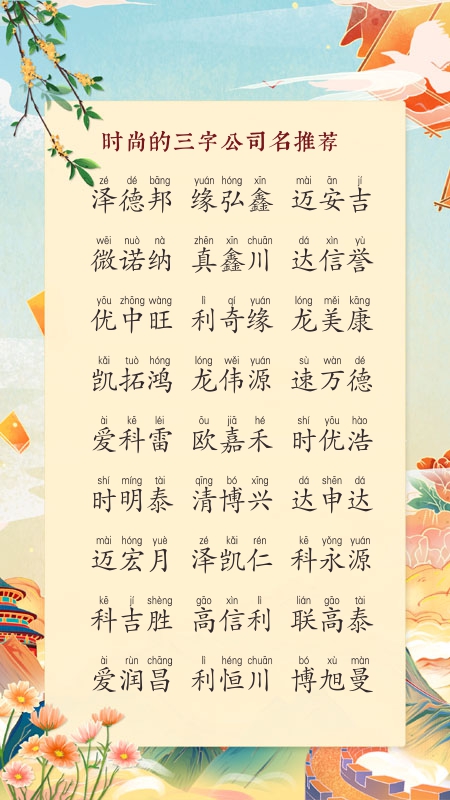 时尚的三字公司名推荐
zé dé bāng yuán hóng xīn mài ān jí
泽德邦 缘弘鑫 迈安吉
wēi nuò nà zhēn xīn chuān dá xìn yù
微诺纳 真鑫川 达信誉
yōu zhōng wàng lì qí yuán lóng měi kāng
优中旺 利奇缘 龙美康
kǎi tuò hóng lóng wěi yuán sù wàn dé
凯拓鸿 龙伟源 速万德
ài kē léi ōu jiā hé shí yōu hào
爱科雷 欧嘉禾 时优浩
shí míng tài qīng bó xīng dá shēn dá
时明泰 清博兴 达申达
mài hóng yuè zé kǎi rén kē yǒng yuán
迈宏月 泽凯仁 科永源
kē jí shèng gāo xìn lì lián gāo tài
科吉胜 高信利 联高泰
ài rùn chāng lì héng chuān bó xù màn
爱润昌 利恒川 博旭曼